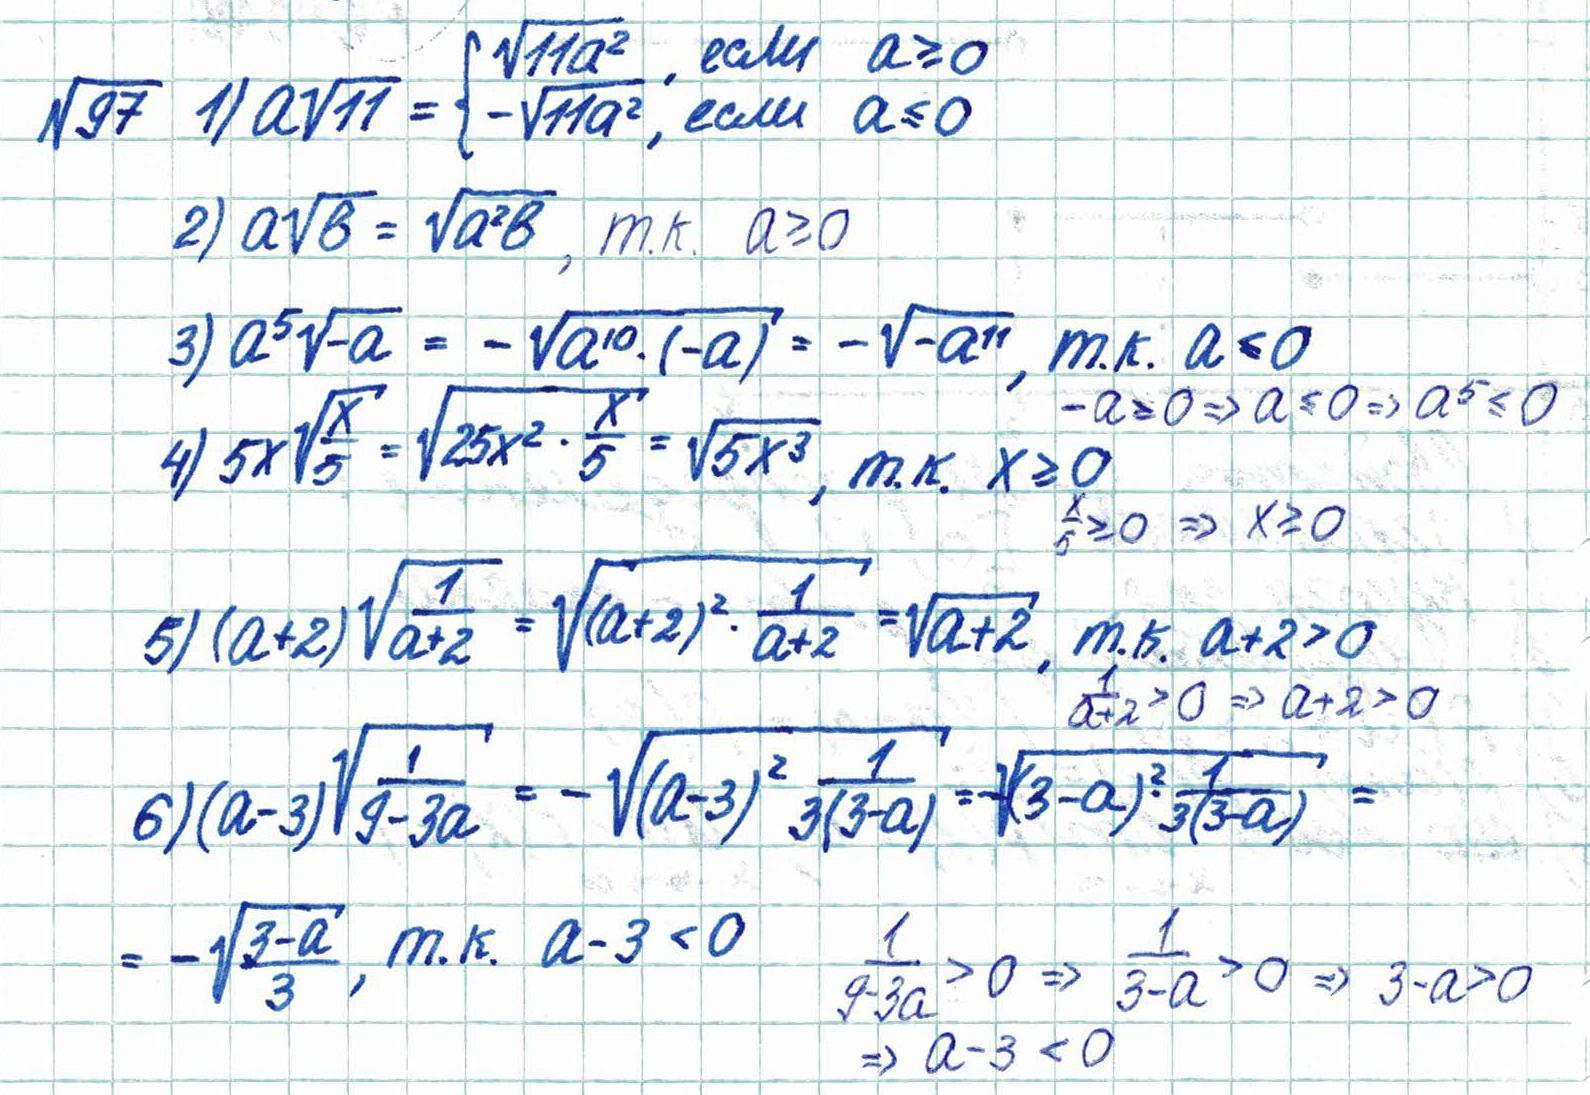 №97 1) a√11 = { √(11a²), если a ≥ 0
-√(11a²), если a ≤ 0
2) a√b = √(a²b), т.к. a ≥ 0
3) a⁵√(-a) = -√(a¹⁰·(-a)) = -√(-a¹¹), т.к. a ≤ 0
-a ≥ 0 => a ≤ 0 => a⁵ ≤ 0
4) 5x√(x/5) = √(25x² · x/5) = √(5x³), т.к. x ≥ 0
x/5 ≥ 0 => x ≥ 0
5) (a+2)√(1/(a+2)) = √((a+2)² · 1/(a+2)) = √(a+2), т.к. a+2 > 0
1/(a+2) > 0 => a+2 > 0
6) (a-3)√(1/(9-3a)) = -√((a-3)² 1/(3(3-a))) = -√((3-a)² · 1/(3(3-a))) =
= -√((3-a)/3), т.к. a-3 < 0 1/(9-3a) > 0 => 1/(3-a) > 0 => 3-a > 0
=> a-3 < 0